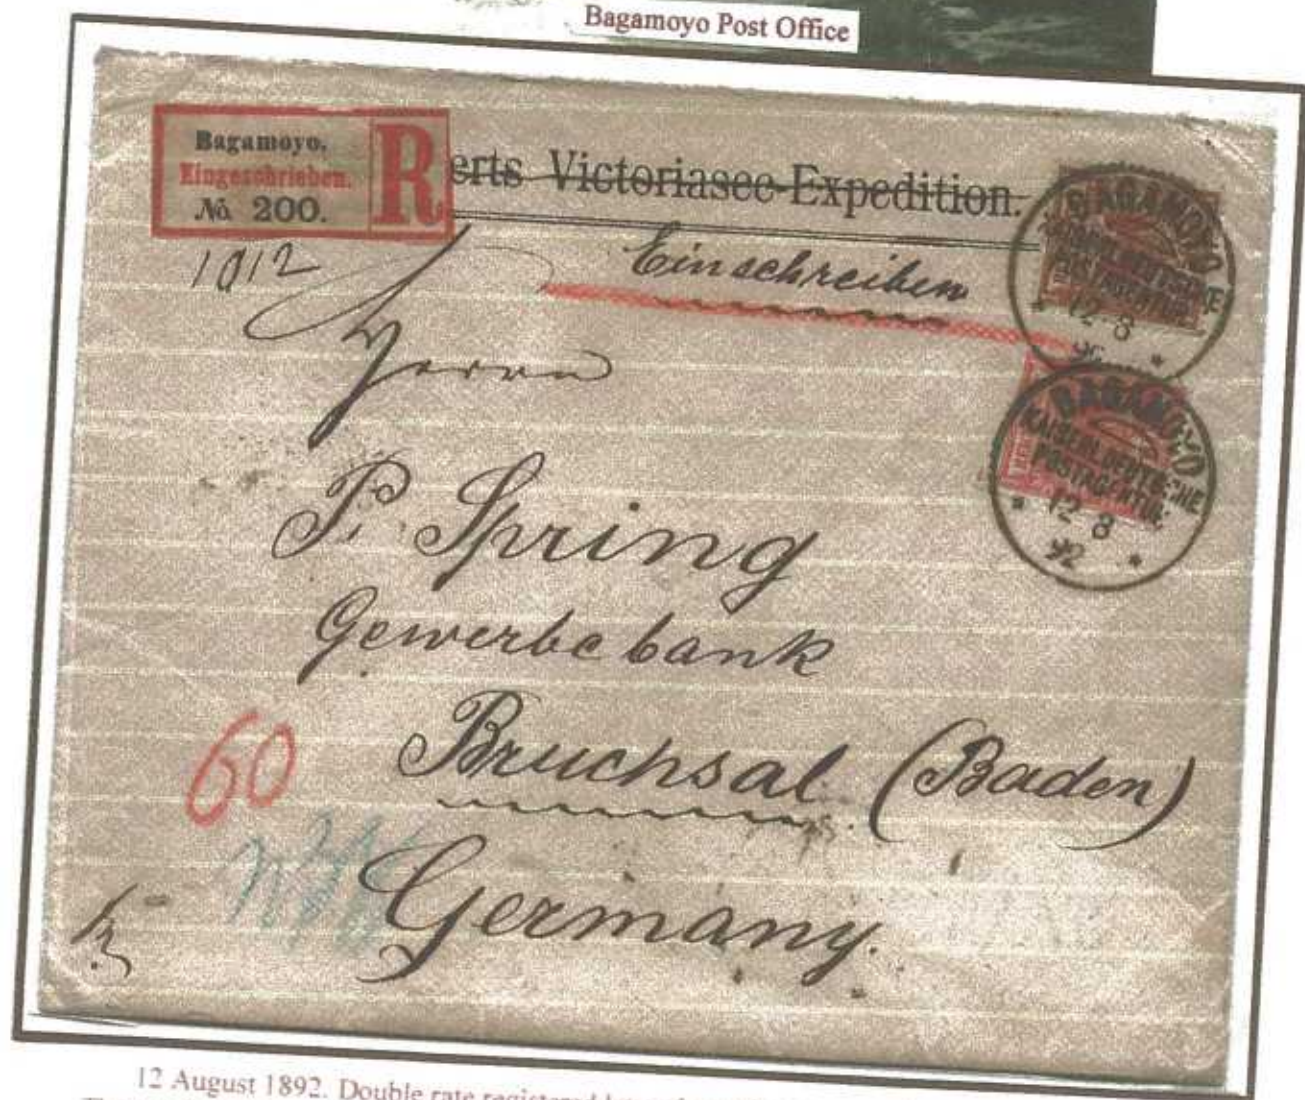 Bagamoyo Post Office
Bagamoyo.
Eingeschrieben.
No. 200.
R
erts Victoriasee-Expedition.
1012
Einschreiben
BAGAMOYO
12 8
Herrn
BAGAMOYO
KAISERL. DEUTSCHE
POSTAGENTUR
12 8
92
P. Spring
Gewerbebank
60
Bruchsal (Baden)
Germany.
12 August 1892. Double rate registered